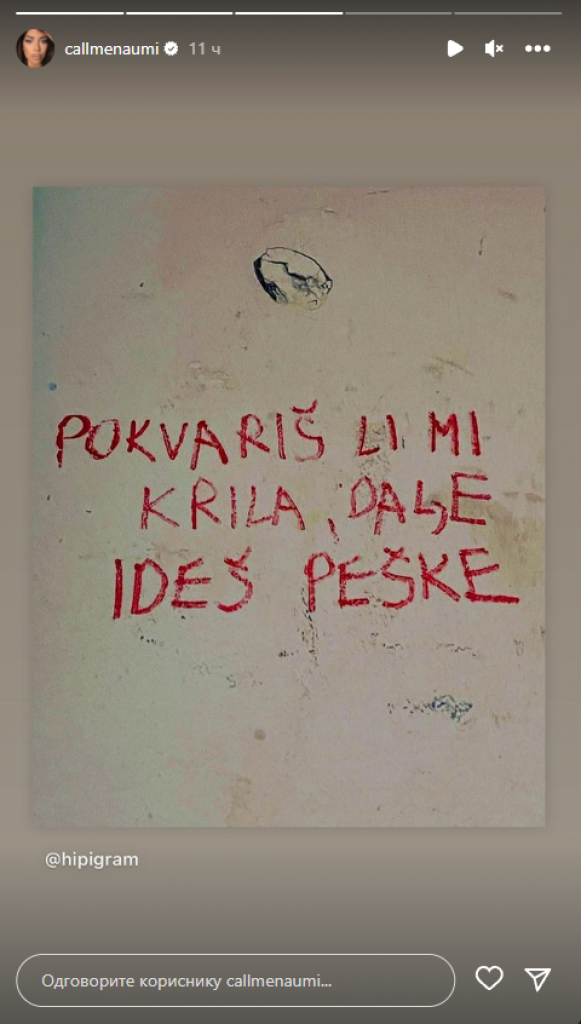 callmenaumi 11 ч
POKVARIŠ LI MI
KRILA, DALJE
IDEŠ PEŠKE
@hipigram
Одговорите кориснику callmenaumi...